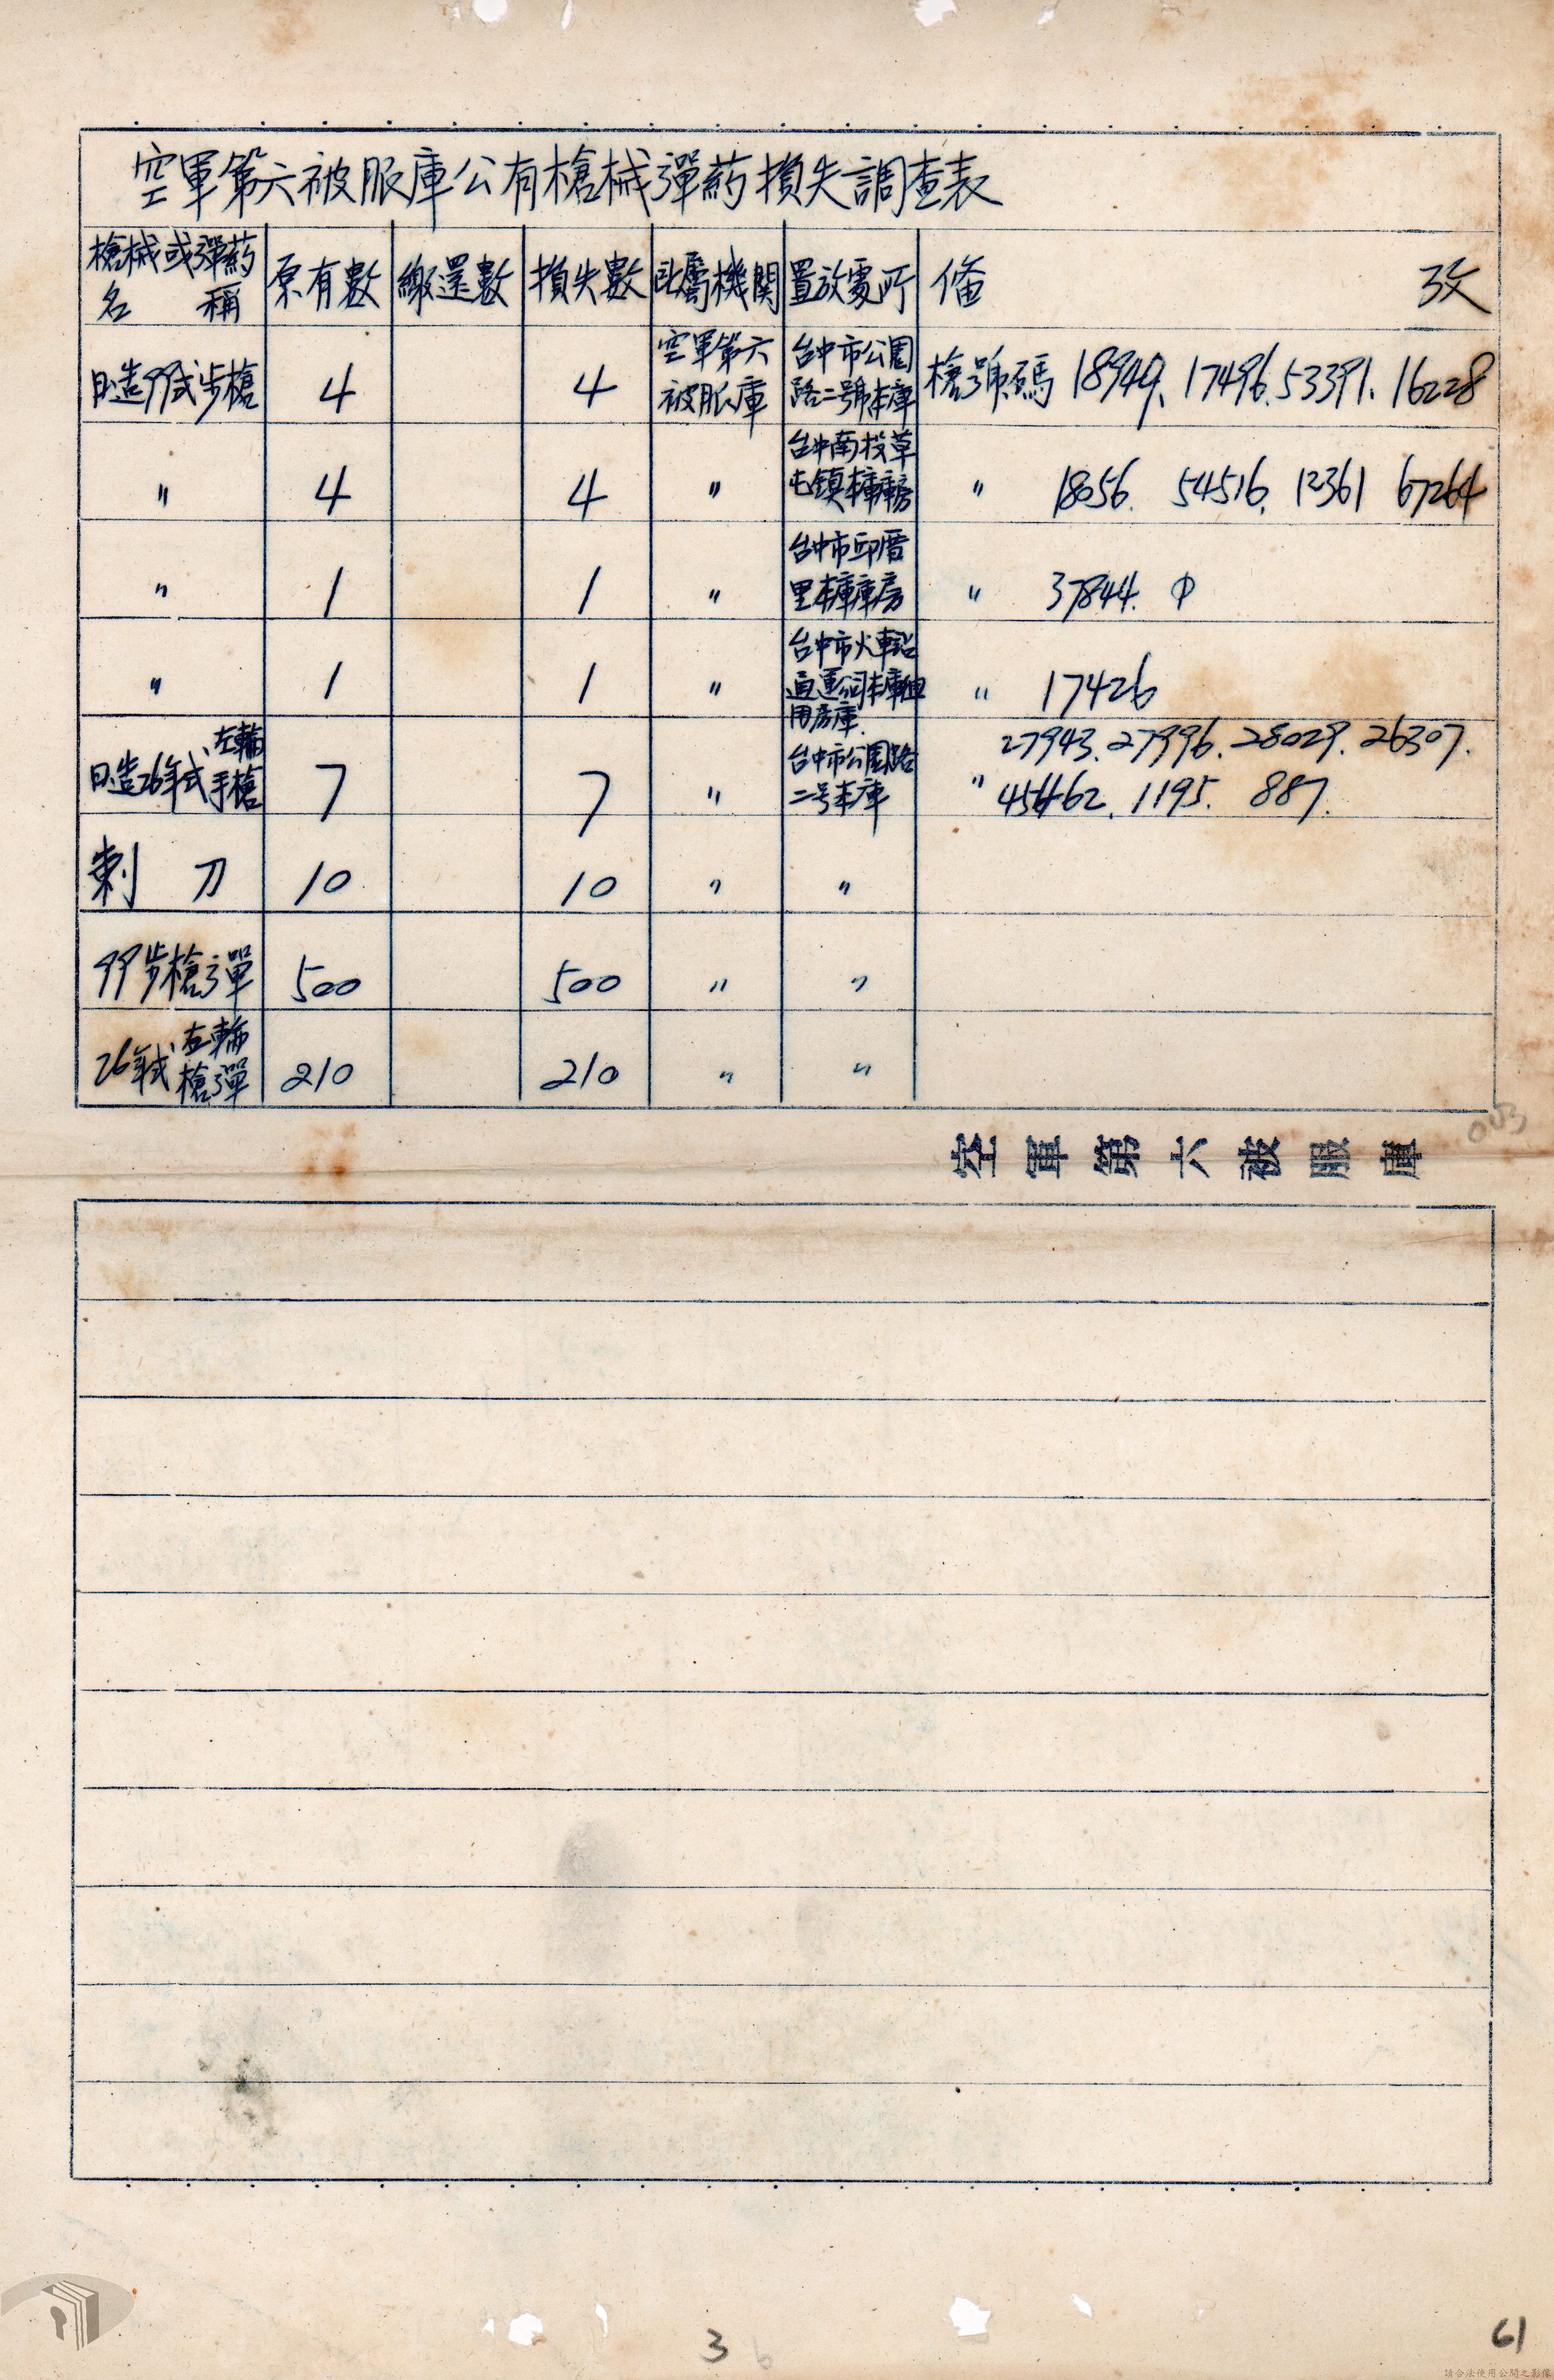 空軍第六被服庫公有槍械彈葯損失調查表
槍械或彈葯名稱 原有數 繳還數 損失數 所屬機関 置放處所 俻 攷
日造99式步槍 4 4 空軍第六被服庫 台中市公園路二號本庫 槍號碼 18949、17496.53391.16228
〃 4 4 〃 台中南投草屯鎮本庫庫房 〃 18056. 54516. 12361 67264
〃 1 1 〃 台中市邱厝里本庫庫房 〃 37844.
〃 1 1 〃 台中市火車站通運公司本庫租用房庫. 〃 17426
日造26年式、左輪手槍 7 7 〃 台中市公園路二号本庫 〃 27943.27996.28029.26307.
1195. 887.
刺刀 10 10 〃 〃
99步槍彈 500 500 〃 〃
26年式、左輪槍彈 210 210 〃 〃
003
空軍第六被服庫
3
61
請合法使用公開之影像